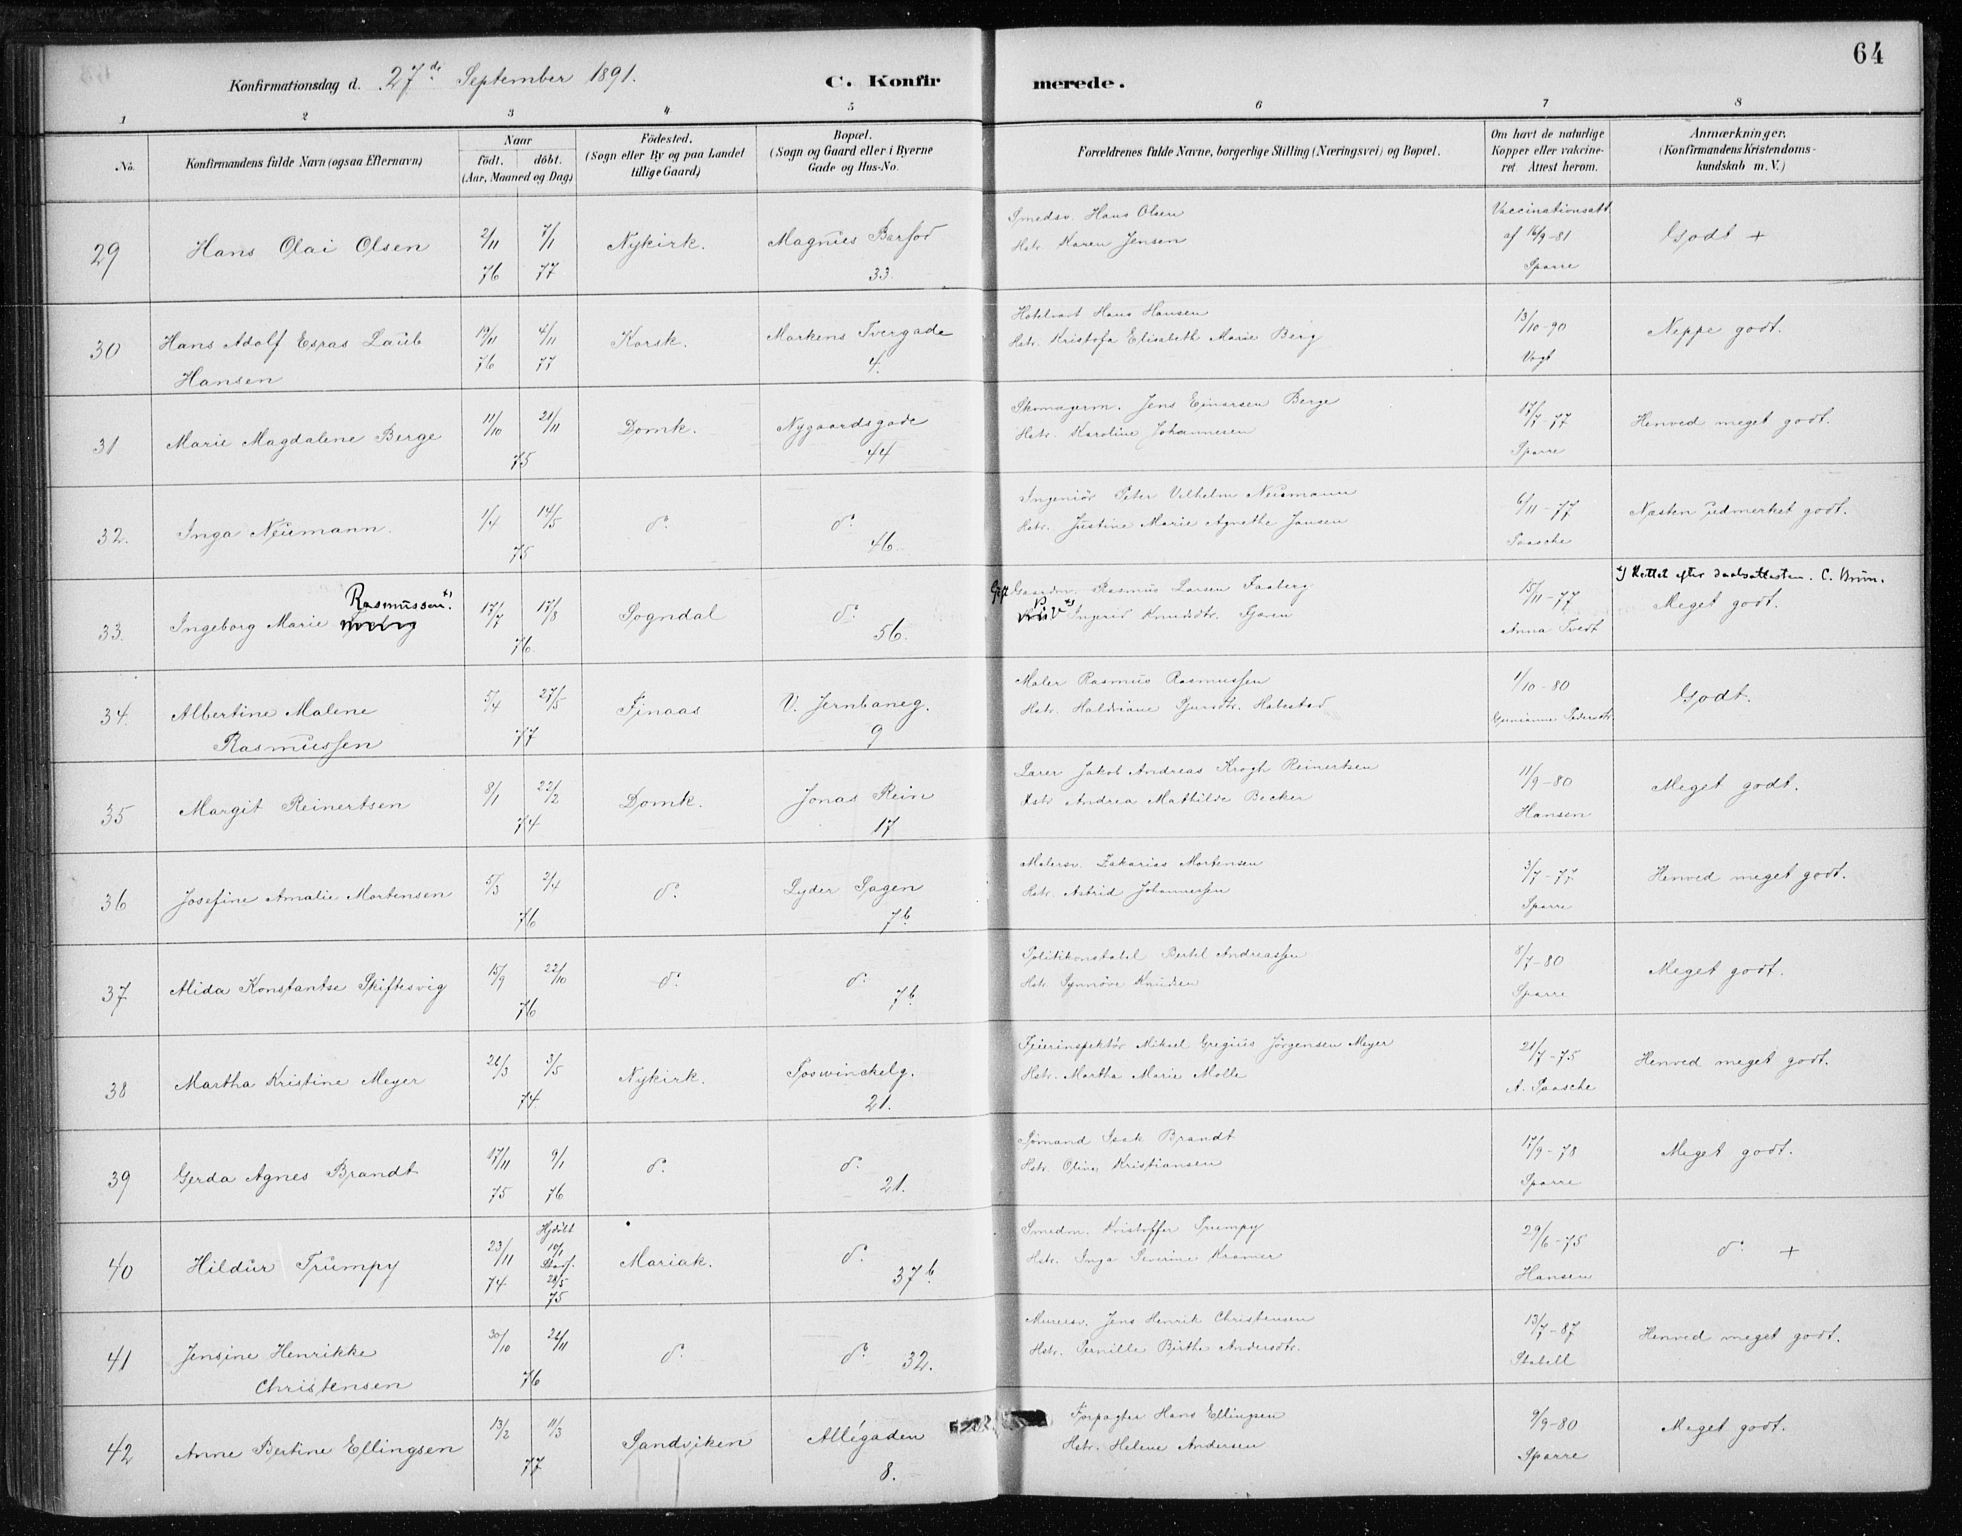 64
Konfirmationsdag d. 27de September 1891.
C. Konfirmerede.
1 2 3 4 5 6 7 8
No.
Konfirmandens fulde Navn (ogsaa Efternavn)
Naar
födt. döbt.
(Aar, Maaned og Dag)
Födested.
(Sogn eller By og paa Landet
tillige Gaard)
Bopæl.
(Sogn og Gaard eller i Byerne
Gade og Hus-No.
Forældrenes fulde Navne, borgerlige Stilling (Næringsvei) og Bopæl.
Om havt de naturlige
Kopper eller vakcine-
ret. Attest herom.
Anmærkninger.
(Konfirmandens Kristendoms-
kundskab m. V.)
29 Hans Olai Olsen 2/11 76 7/1 77 Nykirk. Magnus Barfod 33.
Smedsv. Hans Olsen
Hstr. Karen Jensen
Vaccinationsatt. af 16/9-81 Sparre
Godt +
30 Hans Adolf Esras Laub Hansen 19/11 76 4/11 77 Korsk. Markens Tvergade 4.
Hotelvært Hans Hansen
Hstr. Kristofa Elisabeth Marie Berg
13/10-90 Vogt
Neppe godt.
31 Marie Magdalene Berge 11/10 21/11 75 Domk. Nygaardsgade 44
Skomagerm. Jens Einarsen Berge
Hstr. Karoline Johannesen
17/7-77 Sparre
Henved meget godt.
32. Inga Neumann. 1/4 14/5 75 do. do. 46.
Ingeniör Peter Vilhelm Neumann
Hstr. Justine Marie Agnethe Jansen
6/11-77 Paasche
Næsten udmerket godt.
33. Ingeborg Marie Rasmussen. x) 17/7 17/8 76. Sogndal do. 56.
Gaardm. Rasmus Larsen Faaberg
Pige x) Ingerid Knudsdtr.
15/11-77 Anna Tvedt
x) Rettet efter daabsattesten. C. Brun.
Meget godt.
34. Albertine Malene Rasmussen 5/4 27/5 77 Finaas V. Jernbaneg. 9
Maler Rasmus Rasmussen
Hstr. Haldriane
1/10-80
Godt.
35 Margit Reinertsen 8/1 22/2 74 Domk. Jonas Rein 17
Lærer Jakob Andreas Krogh Reinertsen
Hstr. Andrea Mathilde Becker
11/9-80 Hansen
Meget godt.
36 Josefine Amalie Mortensen 5/3 2/4 76 do. Lyder Sagen 7b
Malersv. Zakarias Mortensen
Hstr. Astrid Johannessen
3/7-77. Sparre
Henved meget godt.
37 Alida Konstantse Skiftesvig 15/9 22/10 76 do. do. 7b.
Politikonstabel Bertel Andreassen
Hstr. Synnöve Knudsen
8/7-80 Sparre
Meget godt.
38 Martha Kristine Meyer 26/3 3/5 74. Nykirk. Foswinckelg. 21.
Feierinspektör Mikael Gregius Jörgensen Meyer
Hstr. Martha Marie Molle
21/7-75 A. Paasche
Henved meget godt.
39 Gerda Agnes Brandt 17/11 75 9/1 76 do. do. 21.
Sömand Isak Brandt
Hstr. Oline Kristiansen
17/9-78 Sparre
Meget godt.
40 Hildur Trumpy 23/11 74. Hjdöbt 10/1 Stadf. 28/5 75 Mariak. do. 37b.
Smedm. Kristoffer Trumpy
Hstr. Inga Severine Kramer
29/6-75 Hansen
do. +
41 Jensine Henrikke Christensen 30/10 26/11 76 do. do. 32.
Murersv. Jens Henrik Christensen
Hstr. Pernille Birthe Andersdtr.
13/7-87 Stabell
Henved meget godt.
42 Anne Bertine Ellingsen 13/2 11/3 77 Sandviken Allégaden 8.
Forpagter Hans Ellingsen
Hstr. Helene Andersen
9/9-80 Sparre
Meget godt.